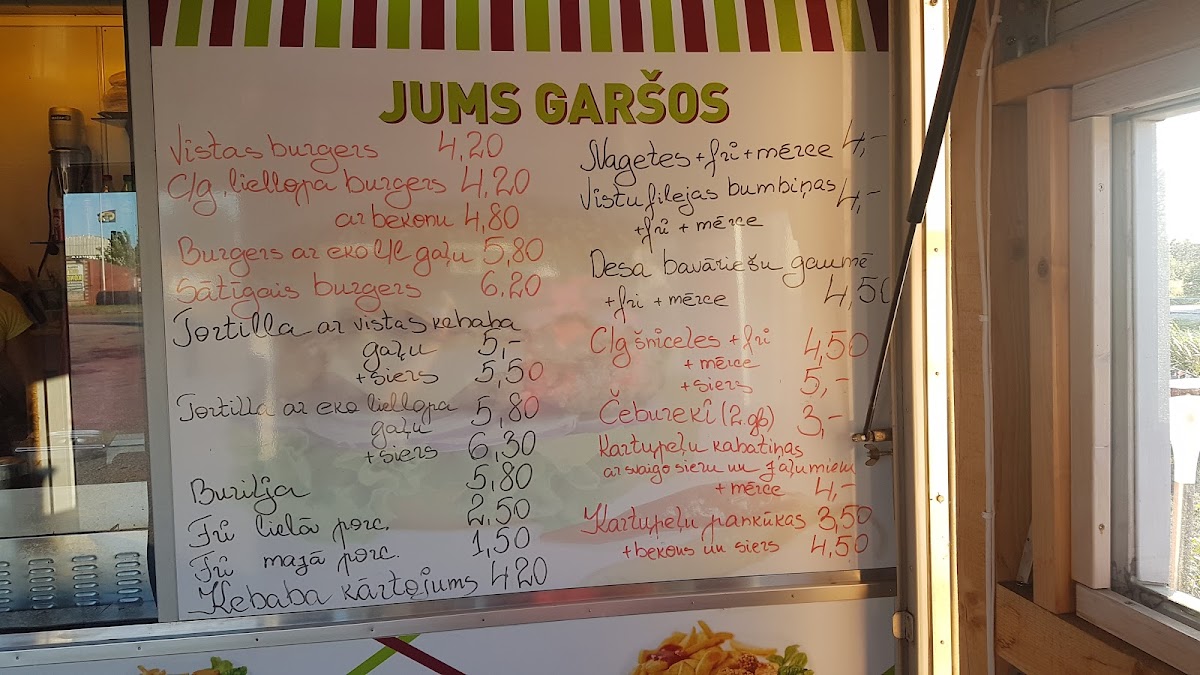 JUMS GARŠOS
Vistas burgers 4,20
C/g liellopa burgers 4,20
ar bekonu 4,80
Burgers ar eko C/L gaļu 5,80
Sātīgais burgers 6.20
Tortilla ar vistas kebaba
gaļu 5,-
+siers 5,50
Tortilla ar eko liellopa 5,80
gaļu
+siers 6,30
Buritja 5,80
Frī lielā porc. 2,50
Frī mazā porc. 1,50
Kebaba kārtojums 4,20
Nagetes +frī+mērce 4,-
Vistu filejas bumbiņas 4,-
+frī + mērce
Desa bavāriešu gaumē
+fri + mērce 4,50
C/g šniceles +fri 4,50
+ mērce
+ siers 5,-
Čeburekī (2.gb) 3,-
Kartupeļu kabatiņas
ar svaigo sieru un zaļumiem
+ mērce 4,-
Kartupeļu pankūkas 3,50
+bekons un siers 4,50